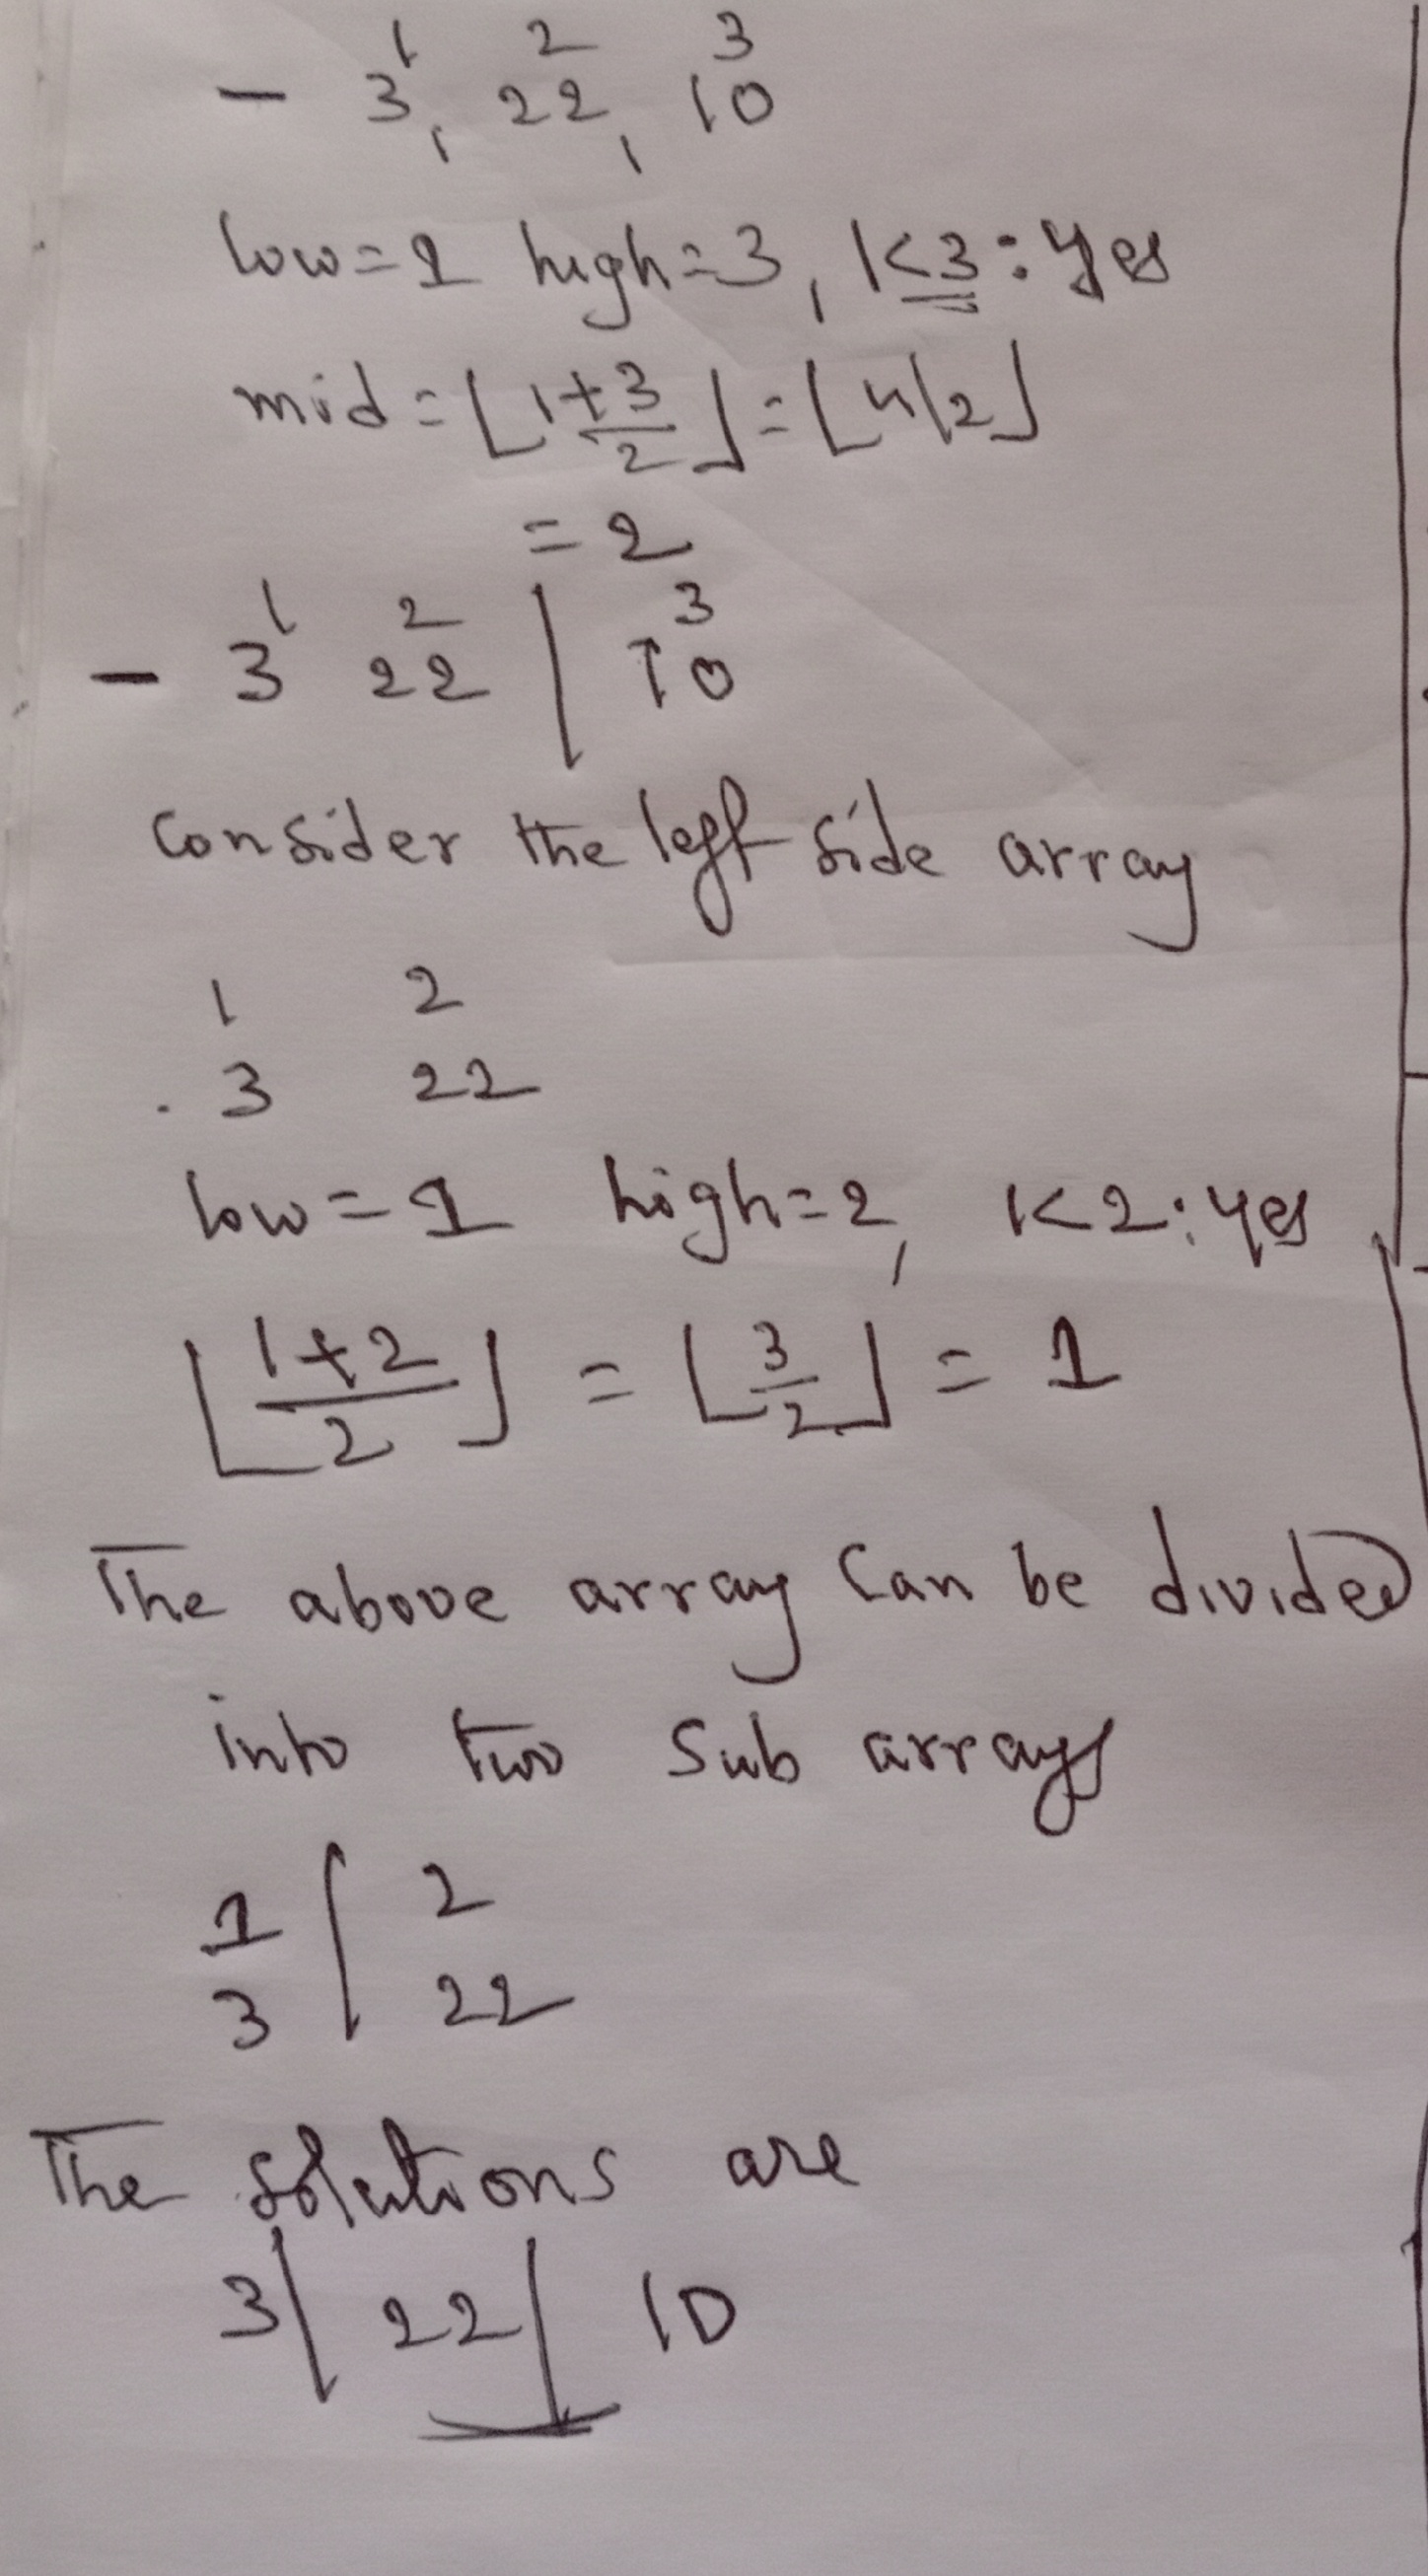 1 2 3
- 3, 22, 10
low=1 high=3, 1<3: Yes
mid = ⌊1+3/2⌋ = ⌊4/2⌋
= 2
1 2 3
- 3 22 | 10
Consider the left side array
1 2
. 3 22
low = 1 high=2, 1<2: yes
⌊1+2/2⌋ = ⌊3/2⌋ = 1
The above array can be divided
into two Sub arrays
1 | 2
3 | 22
The solutions are
3 | 22 | 10